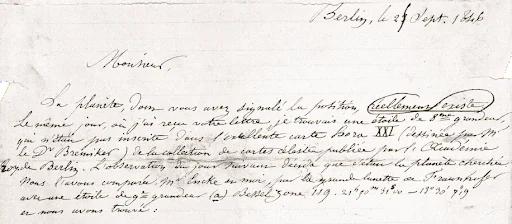 Berlin, le 25 Sept. 1846
Monsieur,
La planète, dont vous avez signalé la position, réellement existe.
Le même jour, où j'ai reçu votre lettre, je trouvais une étoile de 8me grandeur,
qui n'était pas inscrite dans l'excellente carte Hora XXI, (dessinée par Mr.
le Dr Bremiker) de la collection de cartes célestes publiée par l'Académie
royale de Berlin. L'observation du jour suivant décida que c'était la planète cherchée.
Nous l'avons comparée, Mr. Encke et moi, par la grande lunette de Fraunhofer
avec une étoile de 9e grandeur (a) Bessel Zone 119.
et nous avons trouvé: